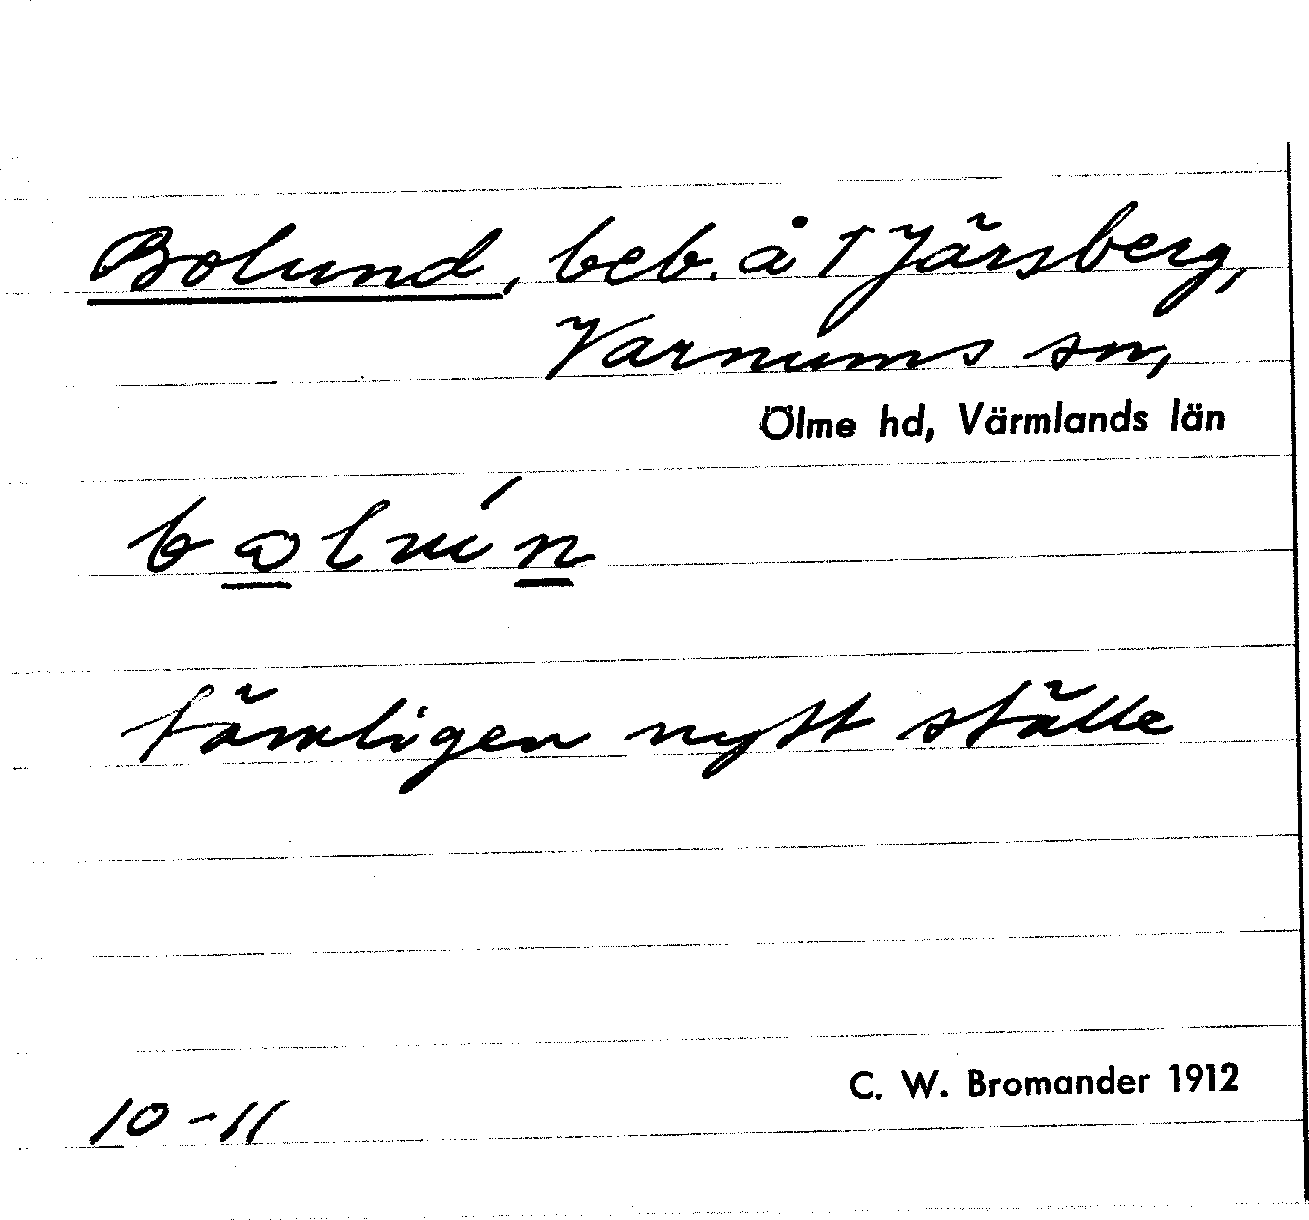 Bolund, beb. å Tjärsberg,
Varnums sn,
Ölme hd, Värmlands län
tämligen nytt ställe
C. W. Bromander 1912
10-11